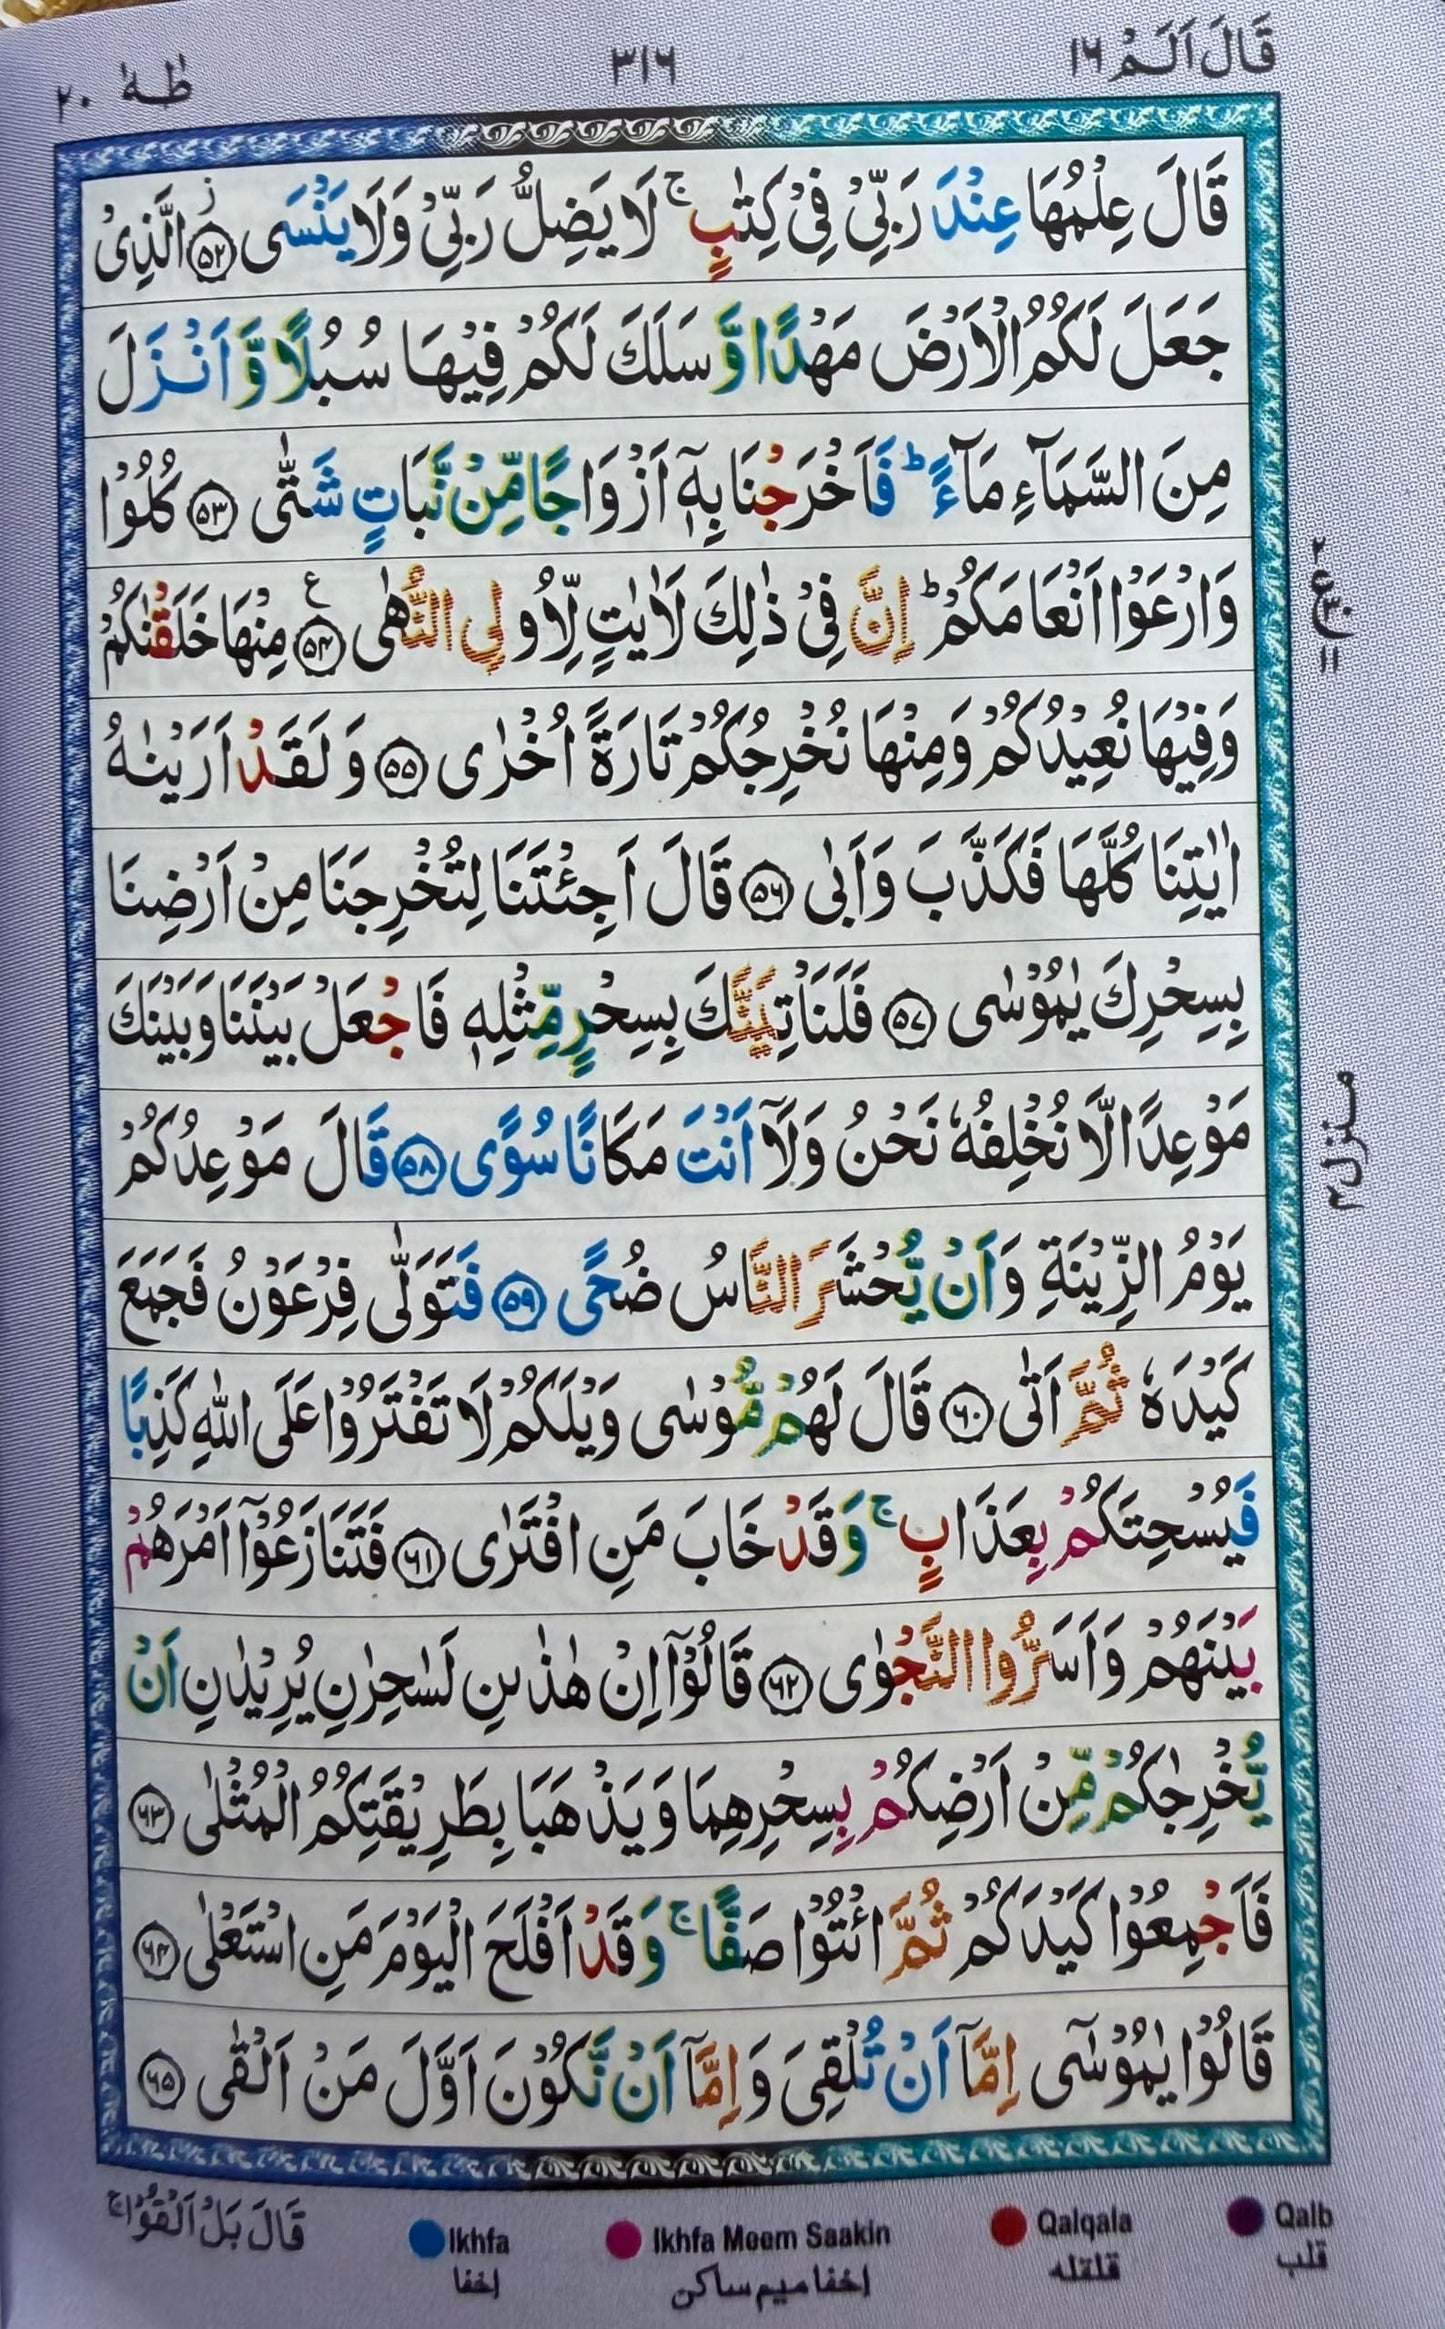 قَالَ اَلَمْ ١٦
٣١٦
طٰهٰ ٢٠
قَالَ عِلْمُهَا عِنْدَ رَبِّیْ فِیْ كِتٰبٍ ۚ لَا یَضِلُّ رَبِّیْ وَلَا یَنْسَی ۝٥٢ؗ الَّذِیْ
جَعَلَ لَكُمُ الْاَرْضَ مَهْدًا وَّ سَلَكَ لَكُمْ فِیْهَا سُبُلًا وَّ اَنْزَلَ
مِنَ السَّمَآءِ مَآءً ؕ فَاَخْرَجْنَا بِهٖۤ اَزْوَاجًا مِّنْ نَّبَاتٍ شَتّٰی ۝٥٣ كُلُوْا
وَارْعَوْا اَنْعَامَكُمْ ؕ اِنَّ فِیْ ذٰلِكَ لَاٰیٰتٍ لِّاُولِی النُّهٰی ۝٥٤ع مِنْهَا خَلَقْنٰكُمْ
وَفِیْهَا نُعِیْدُكُمْ وَمِنْهَا نُخْرِجُكُمْ تَارَةً اُخْرٰی ۝٥٥ وَلَقَدْ اَرَیْنٰهُ
اٰیٰتِنَا كُلَّهَا فَكَذَّبَ وَاَبٰی ۝٥٦ قَالَ اَجِئْتَنَا لِتُخْرِجَنَا مِنْ اَرْضِنَا
بِسِحْرِكَ یٰمُوْسٰی ۝٥٧ فَلَنَاْتِیَنَّكَ بِسِحْرٍ مِّثْلِهٖ فَاجْعَلْ بَیْنَنَا وَبَیْنَكَ
مَوْعِدًا لَّا نُخْلِفُهٗ نَحْنُ وَلَاۤ اَنْتَ مَكَانًا سُوًی ۝٥٨ قَالَ مَوْعِدُكُمْ
یَوْمُ الزِّیْنَةِ وَاَنْ یُّحْشَرَ النَّاسُ ضُحًی ۝٥٩ فَتَوَلّٰی فِرْعَوْنُ فَجَمَعَ
كَیْدَهٗ ثُمَّ اَتٰی ۝٦٠ قَالَ لَهُمْ مُّوْسٰی وَیْلَكُمْ لَا تَفْتَرُوْا عَلَی اللّٰهِ كَذِبًا
فَیُسْحِتَكُمْ بِعَذَابٍ ۚ وَقَدْ خَابَ مَنِ افْتَرٰی ۝٦١ فَتَنَازَعُوْۤا اَمْرَهُمْ
بَیْنَهُمْ وَاَسَرُّوا النَّجْوٰی ۝٦٢ قَالُوْۤا اِنْ هٰذٰىنِ لَسٰحِرٰنِ یُرِیْدٰنِ اَنْ
یُّخْرِجٰكُمْ مِّنْ اَرْضِكُمْ بِسِحْرِهِمَا وَیَذْهَبَا بِطَرِیْقَتِكُمُ الْمُثْلٰی ۝٦٣
فَاَجْمِعُوْا كَیْدَكُمْ ثُمَّ ائْتُوْا صَفًّا ۚ وَقَدْ اَفْلَحَ الْیَوْمَ مَنِ اسْتَعْلٰی ۝٦٤
قَالُوْا یٰمُوْسٰۤی اِمَّاۤ اَنْ تُلْقِیَ وَاِمَّاۤ اَنْ نَّكُوْنَ اَوَّلَ مَنْ اَلْقٰی ۝٦٥
منزل٤
قَالَ بَلْ اَلْقُوْا ۚ
Ikhfa
اخفا
Ikhfa Meem Saakin
اخفا میم ساکن
Qalqala
قلقله
Qalb
قلب